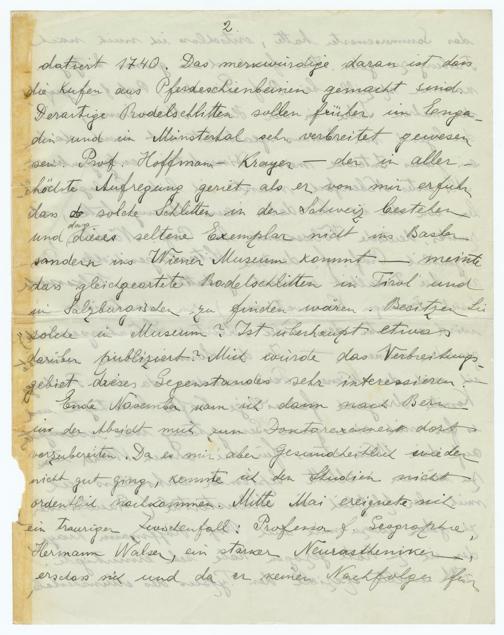 2.
datiert 1740. Das merkwürdige daran ist dass
die Kufen aus Pferdeschienbeinen gemacht sind.
Derartige Rodelschlitten sollen früher im Enga-
din und im Münstertal sehr verbreitet gewesen
sein. Prof. Hoffmann-Krayer – der in aller-
höchste Aufregung geriet als er von mir erfuhr
dass solche Schlitten in der Schweiz bestehen
und dass dieses seltene Exemplar nicht ins Basler
sondern ins Wiener Museum kommt – meinte
dass gleichgeartete Rodelschlitten in Tirol und
in Salzburgischen zu finden wären. Besitzen Sie
solche im Museum? Ist überhaupt etwas
darüber publiziert? Mich würde das Verbreitungs-
gebiet dieses Gegenstandes sehr interessieren.
Ende November kam ich dann nach Bern
in der Absicht mich zum Doktorexamen dort
vorzubereiten. Da es mir aber gesundheitlich wieder
nicht gut ging, konnte ich den Studien nicht
ordentlich nachkommen. Mitte Mai ereignete sich
ein trauriger Zwischenfall: Professor f. Geographie,
Hermann Walser, ein starker Neurastheniker,
erschoss sich und da er keinen Nachfolger für